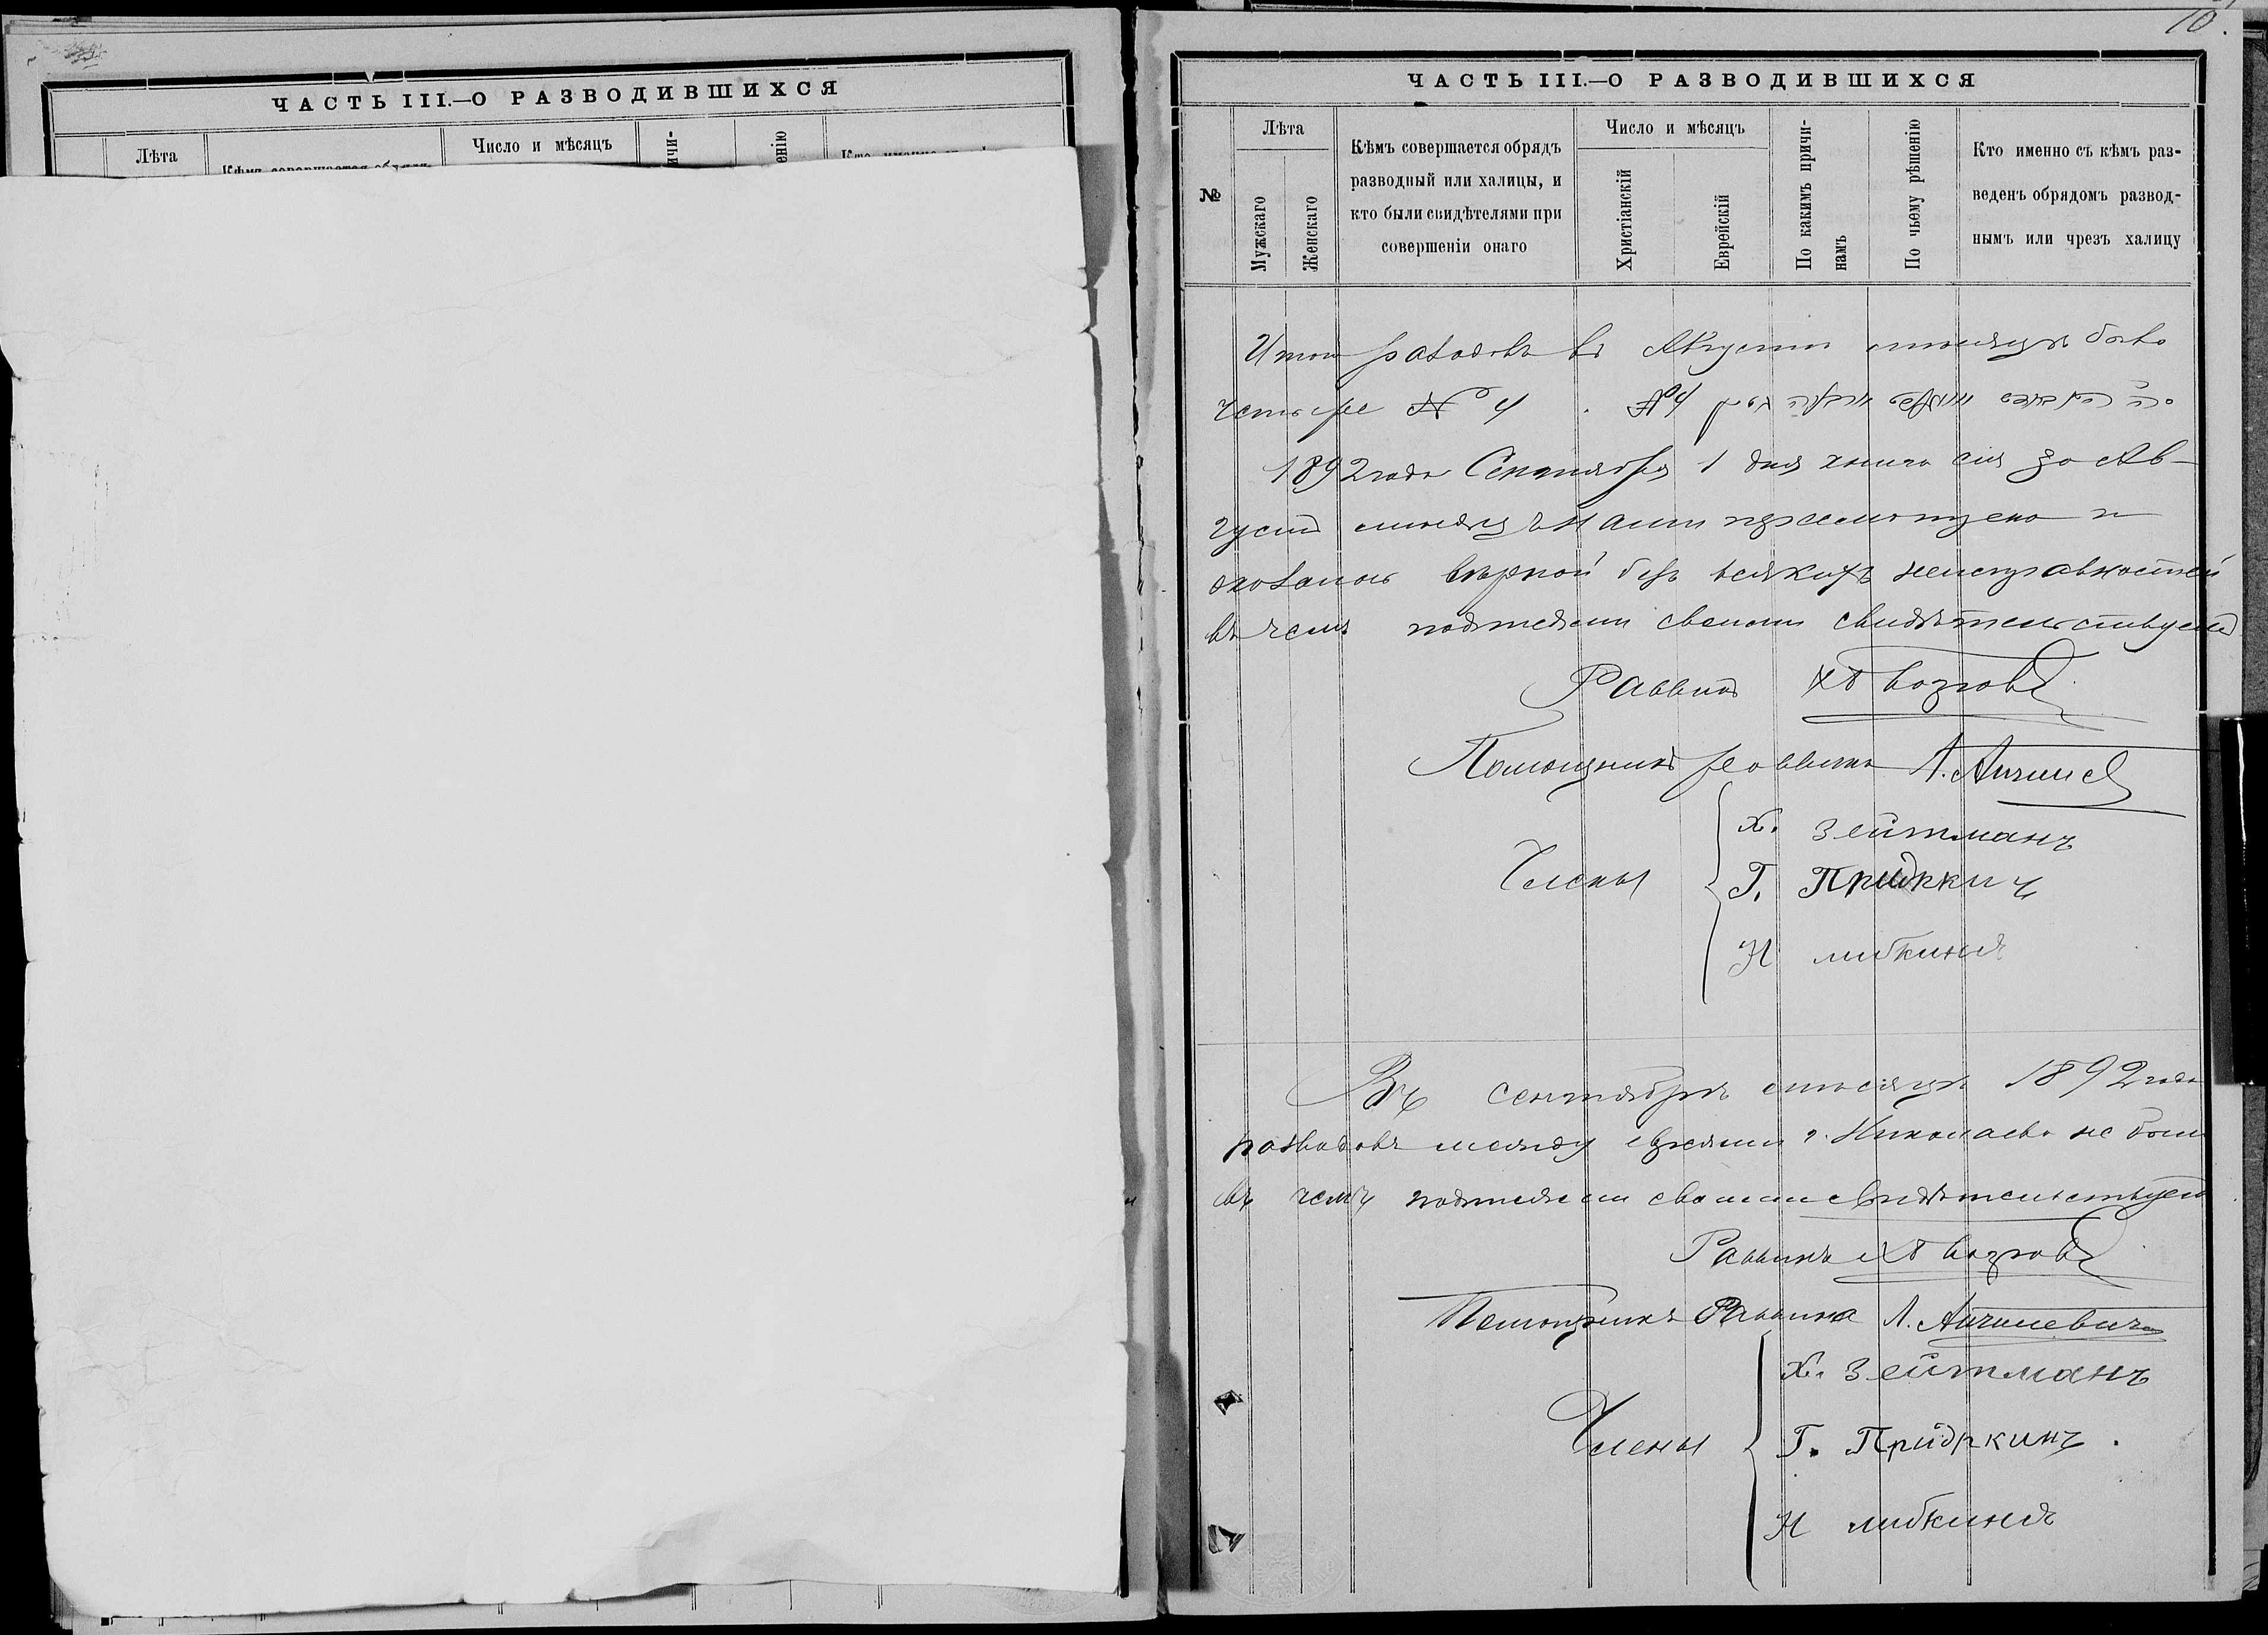 10.
ЧАСТЬ III.—О РАЗВОДИВШИХСЯ
Лѣта
Число и мѣсяцъ
ЧАСТЬ III.—О РАЗВОДИВШИХСЯ
№
Лѣта
Мужскаго
Женскаго
Кѣмъ совершается обрядъ
разводный или халицы, и
кто были свидѣтелями при
совершеніи онаго
Число и мѣсяцъ
Христіанскій
Еврейскій
По какимъ причи-
намъ
По чьему рѣшенію
Кто именно съ кѣмъ раз-
веденъ обрядомъ развод-
нымъ или чрезъ халицу
Итого разводовъ въ Августѣ мѣсяцѣ было
четыре № 4 . № 4
1892 года Сентября 1 дня книга сія за Ав-
густъ мѣсяцъ нами просмотрена и
оказалась вѣрной безъ всякихъ неисправностей
въ чемъ подписями своими свидѣтельствуемъ
Раввинъ
Помощникъ раввина Л.
Члены
Х. Зейтманъ
Г.
Н либкинъ
Въ сентябрѣ мѣсяцѣ 1892 года
разводовъ между евреями г. Николаева не было
въ чемъ подписями своими свидѣтельствуемъ
Раввинъ
Помощникъ Раввина Л.
Члены
Х. Зейтманъ
Г. Придркинъ.
Н либкинъ